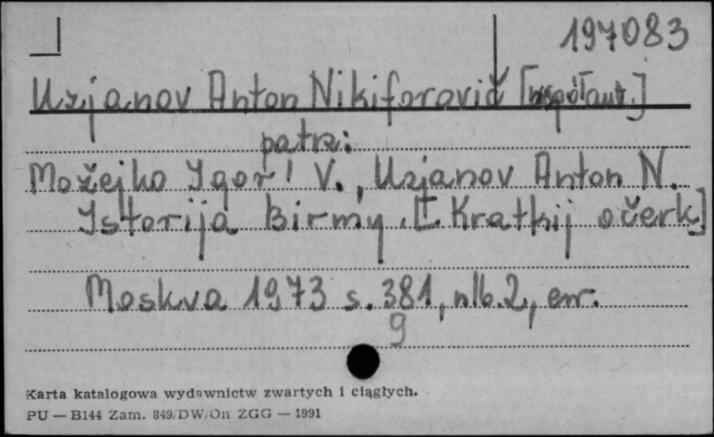 197083
Uzjanov Anton Nikiforovič [współaut.]
patrz:
Možejko Igor' V., Uzjanov Anton N.
Istorija Birmy. [Kratkij očerk]
Moskva 1973 s. 381, nlb. 2, err.
9
Karta katalogowa wydawnictw zwartych i ciągłych.
PU — B144 Zam. 849/DW/On ZGG — 1991